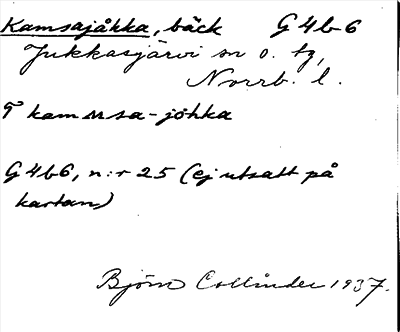 Kamsajåkka, bäck G4b6
Jukkasjärvi sn o. tg,
Norrb. l.
kamмsa-jòhka
G4b6, n:r 25 (ej utsatt på
kartan)
Björn Collinder 1937.